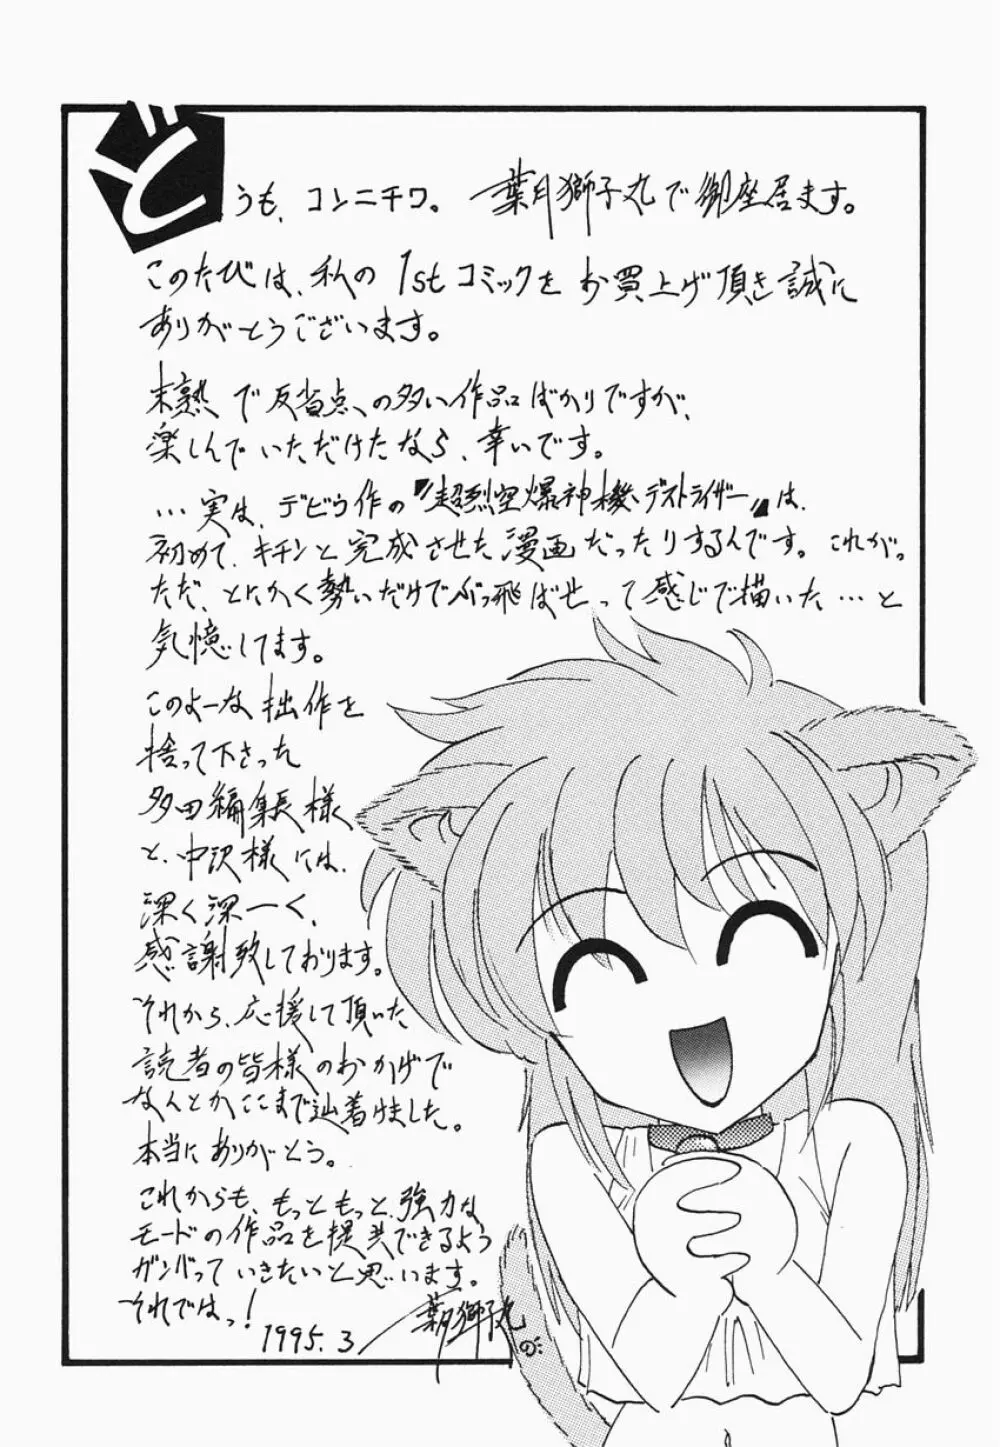 どうも、コンニチワ。葉月獅子丸で御座居ます。
このたびは、私の1stコミックをお買上げ頂き誠に
ありがとうございます。
未熟で反省点の多い作品ばかりですが、
楽しんでいただけたなら、幸いです。
…実は、デビウ作の〝超烈空爆神機デストライザー〟は、
初めて、キチンと完成させた漫画だったりするんです。これが。
ただ、とにかく勢いだけでぶっ飛ばせって感じで描いた…と
気憶してます。
このよーな拙作を
捨って下さった
多田編集長様
と、中沢様には、
深く深ーく、
感謝致しております。
それから、応援して頂いた、
読者の皆様のおかげで
なんとかここまで辿着けました。
本当にありがとう。
これからも、もっともっと、強力な
モードの作品を提供できるよう
ガンバっていきたいと思います。
それではっ!
1995.3 葉月獅子丸